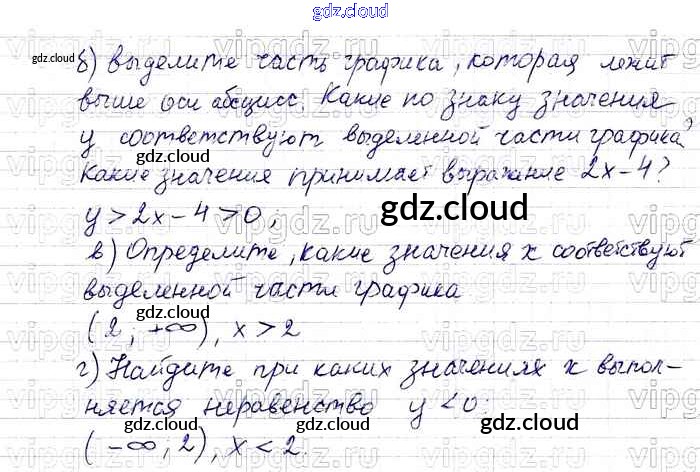 gdz.cloud
б) выделите часть графика, которая лежит
выше оси абсцисс. Какие по знаку значения
y соответствуют выделенной части графика?
gdz.cloud
Какие значения принимает выражение 2x-4?
y > 2x - 4 > 0;
gdz.cloud
в) Определите, какие значения x соответствуют
выделенной части графика
gdz.cloud
(2; +∞), x > 2
г) Найдите при каких значениях x выпол-
няется неравенство y < 0:
gdz.cloud
(-∞; 2), x < 2.
gdz.cloud